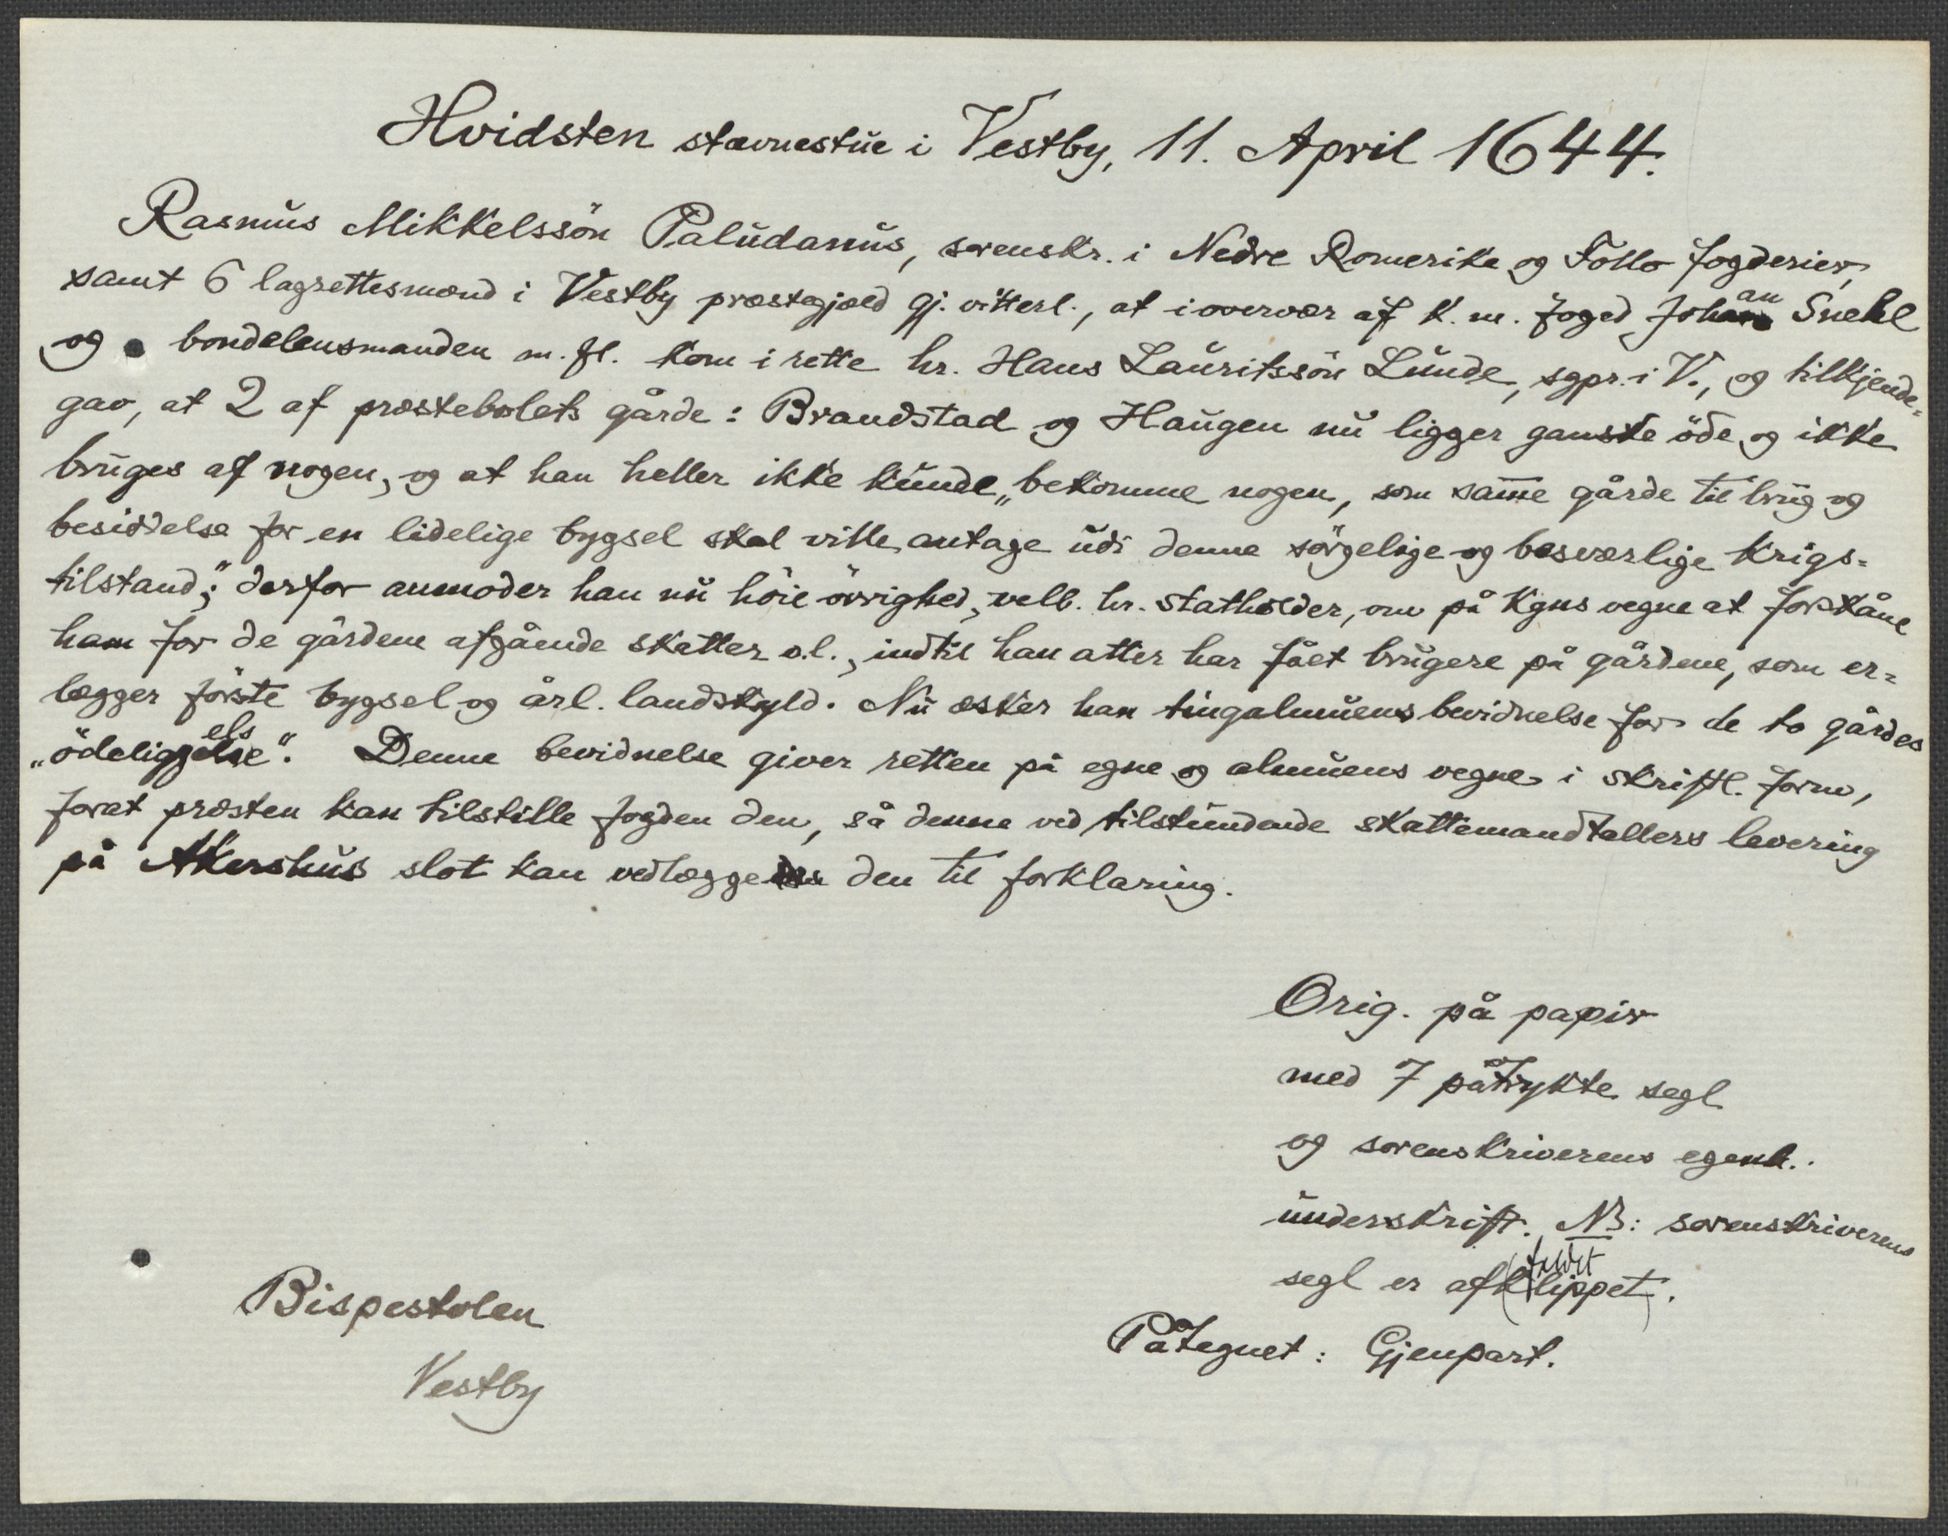 Hvidsten stævnestue i Vestby, 11. April 1644.
Rasmus Mikkelssön Paludanus, sorenskr. i Nedre Romerike og Follo fogderier,
samt 6 lagrettesmænd i Vestby præstegjæld gj. vitterl., at i overvær af k. m. foged Johan Snekl
og bondelensmanden m. fl. kom i rette hr. Hans Lauritssön Lunde, sgpr. i V., og tilkjende-
gav, at 2 af præstebolets gårde: Brandstad og Haugen nu ligger ganske öde og ikke
bruges af nogen, og at han heller ikke kunde „bekomme nogen, som same gårde til brug og
besiddelse for en lidelige bygsel skal ville antage udi denne sörgelige og besværlige krigs-
tilstand;" derfor anmoder han nu höie övrighed, velb. hr. statholder, om på kgns vegne at forskåne
ham for de gårdene afgående skatter o.l., indtil han atter har fået brugere på gårdene, som er-
lægger förste bygsel og årl. landskyld. Nu æsker han tingalmuens bevidnelse for de to gårdes
„ödeliggelse". Denne bevidnelse giver retten på egne og almuens vegne i skriftl. form,
forat præsten kan tilstille fogden den, så denne ved tilstundende skattemandtallers levering
på Akershus slot kan vedlægge den til forklaring.
Orig. på papir
med 7 påtrykte segl
og sorenskriverens egenh.
underskrift. NB: sorenskriverens
segl er af(klippet).
Påtegnet: Gjenpart.
Bispestolen
Vestby